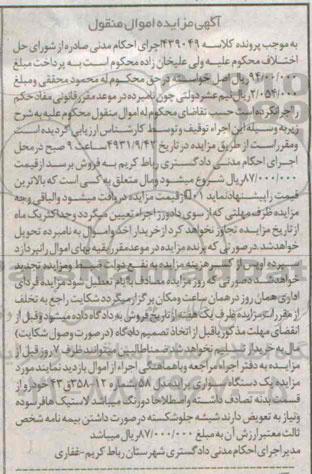 آگهی مزایده اموال منقول
به موجب پرونده کلاسه ۴۳۹۰۴۹ اجرای احکام مدنی صادره از شورای حل
اختلاف محکوم علیه ولی علیخان زاده محکوم است به پرداخت مبلغ
۹۴/۰۰۰/۰۰۰ ریال اصل خواسته در حق محکوم له محمود محققی ومبلغ
۲/۰۵۴/۰۰۰ ریال نیم عشر دولتی چون نامبرده در موعد مقرر قانونی مفاد حکم
را اجرا نکرده است حسب تقاضای محکوم له اموال منقول محکوم علیه به شرح
زیر به وسیله این اجراء توقیف و توسط کارشناس ارزیابی گردیده است
ومقرر است از طریق مزایده در تاریخ ۴۹۳۱/۹/۴۲ ساعت ۹ صبح در محل
اجرای احکام مدنی دادگستری رباط کریم به فروش برسد از قیمت
۸۷/۰۰۰/۰۰۰ ریال شروع میشود ومال متعلق به کسی است که بالاترین
قیمت را پیشنهاد نماید ۰۱٪ از قیمت مزایده دریافت میشود والباقی وجه
مزایده ظرف مهلتی که از سوی دادورز اجراء تعیین میگردد وحداکثر یک ماه
از تاریخ مزایده تجاوز نخواهد کرد از خریدار اخذ واموال به نامبرده تحویل
خواهد شد. در صورتی که برنده مزایده در موعد مقرر بقیه بهای اموال را نپردازد
سپرده او پس از کسر هزینه مزایده به نفع دولت ضبط ومزایده تجدید
خواهد شد درصورتی که روز مزایده مصادف با ایام تعطیل شود مزایده فردای
اداری همان روز در همان ساعت ومکان برگزار میگردد شکایت راجع به تخلف
از مقررات مزایده ظرف یک هفته از تاریخ فروش به دادگاه داده میشود وقبل از
انقضای مهلت مذکور یا قبل از اتخاذ تصمیم دادگاه (در صورت وصول شکایت)
مال به خریدار تسلیم نخواهد شد ضمنا طالبین میتوانند ظرف ۷ روز قبل از
مزایده به دفتر اجراء مراجعه و با هماهنگی اجراء از اموال بازدید نمایند مورد
مزایده یک دستگاه سواری پراید مدل ۵۸ بشماره ۱۲-۳۵۸ ق ۴۳ خودرو از
قسمت بدنه تصادف داشته واصطلاحا دور رنگ میباشد لاستیک ها فرسوده
ونیاز به تعویض دارند شیشه جلو شکسته در صورت داشتن بیمه نامه شخص
ثالث معتبر ارزش آن به مبلغ ۸۷/۰۰۰/۰۰۰ ریال میباشد
مدیر اجرای احکام مدنی دادگستری شهرستان رباط کریم - غفاری